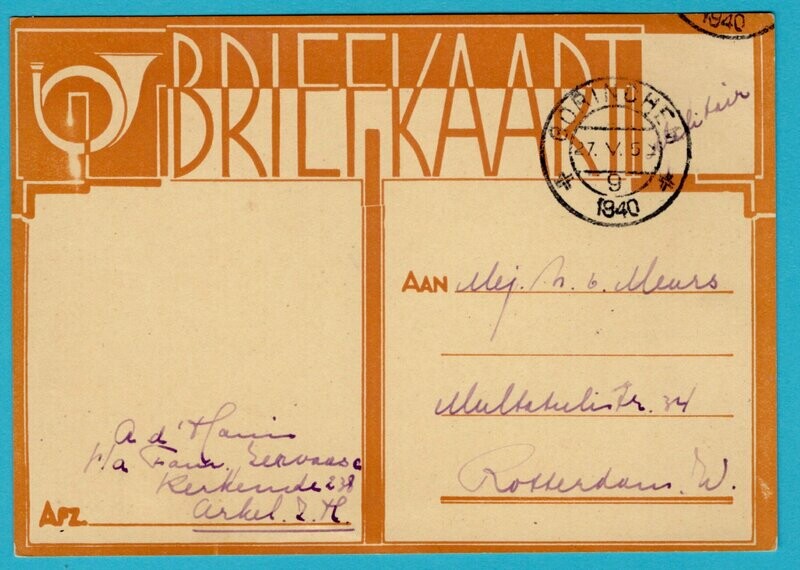 BRIEFKAART
1940
GORINCHEM
27. V. 5
9
1940
Militair
AAN Mej. N. v. Meurs
Multatulistr. 34
Rotterdam. W.
A d'
p/a Fam. Servaas
Kerkeinde 238
AFZ. Arkel. Z. H.